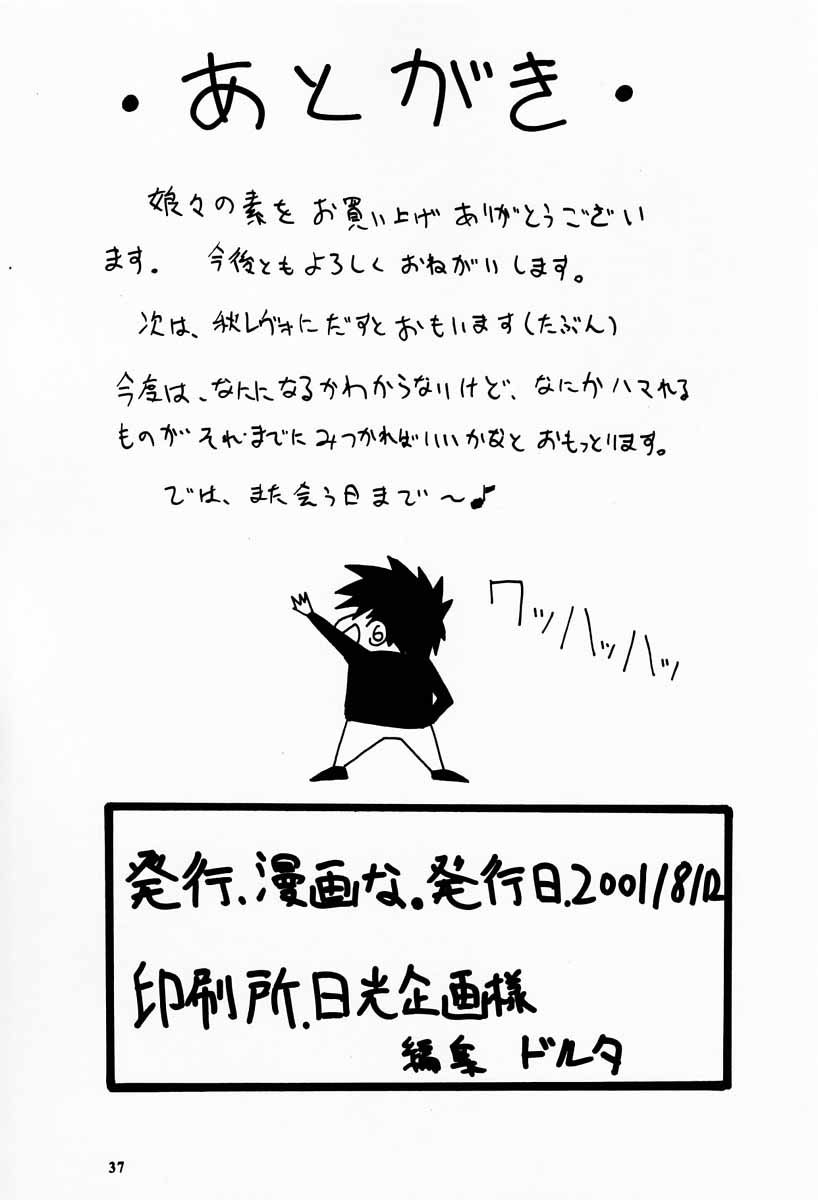 ・あとがき・
娘々の素をお買い上げありがとうござい
ます。 今後ともよろしくおねがいします。
次は、秋レヴォにだすとおもいます(たぶん)
今度は、なにになるかわからないけど、なにかハマれる
ものがそれまでにみつかればいいかなと おもっとります。
では、また会う日まで～♪
ワッハッハッ
発行.漫画な。発行日.2001/8/12
印刷所.日光企画様
編集 ドルタ
37